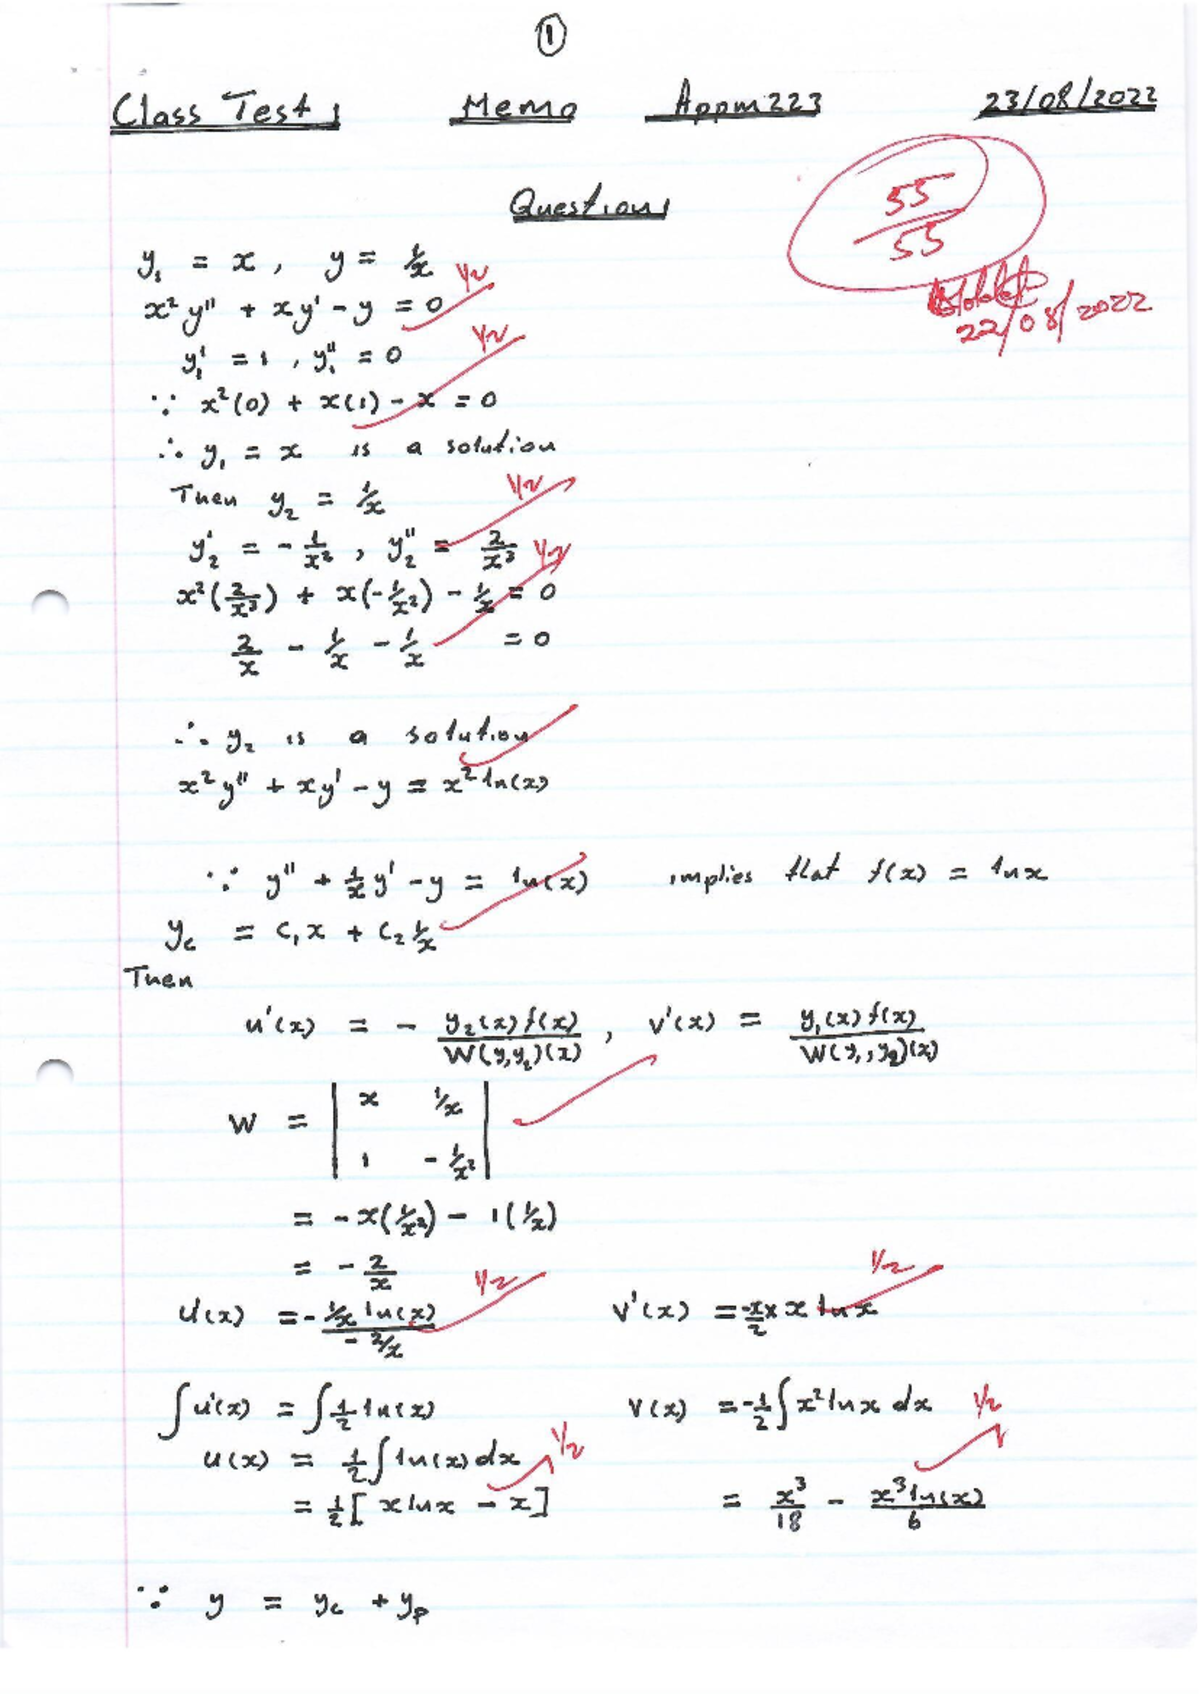 1
Class Test 1 Memo Appm223 23/08/2022
55/55
Question 1
22/08/2022
y₁ = x, y = 1/x 1/2
x²y'' + xy' - y = 0
y₁' = 1, y₁'' = 0 1/2
∵ x²(0) + x(1) - x = 0
∴ y₁ = x is a solution
Then y₂ = 1/x 1/2
y₂' = -1/x², y₂'' = 2/x³ 1/2
x²(2/x³) + x(-1/x²) - 1/x = 0
2/x - 1/x - 1/x = 0
∴ y₂ is a solution
x²y'' + xy' - y = x² ln(x)
∵ y'' + 1/x y' - y = ln(x) implies that f(x) = ln x
y_c = c₁x + c₂ 1/x
Then
u'(x) = - y₂(x) f(x) / W(y,y₂)(x), v'(x) = y₁(x) f(x) / W(y₁,y₂)(x)
W = | x 1/x |
| 1 -1/x² |
= -x(1/x²) - 1(1/x)
= -2/x 1/2 1/2
u'(x) = - 1/x ln(x) / -2/x v'(x) = -x/2 x x ln x
∫u'(x) = ∫ 1/2 ln(x) v(x) = -1/2 ∫ x² ln x dx 1/2
u(x) = 1/2 ∫ ln(x) dx 1/2
= 1/2 [x ln x - x] = x³/18 - x³ ln(x)/6
∵ y = y_c + y_p